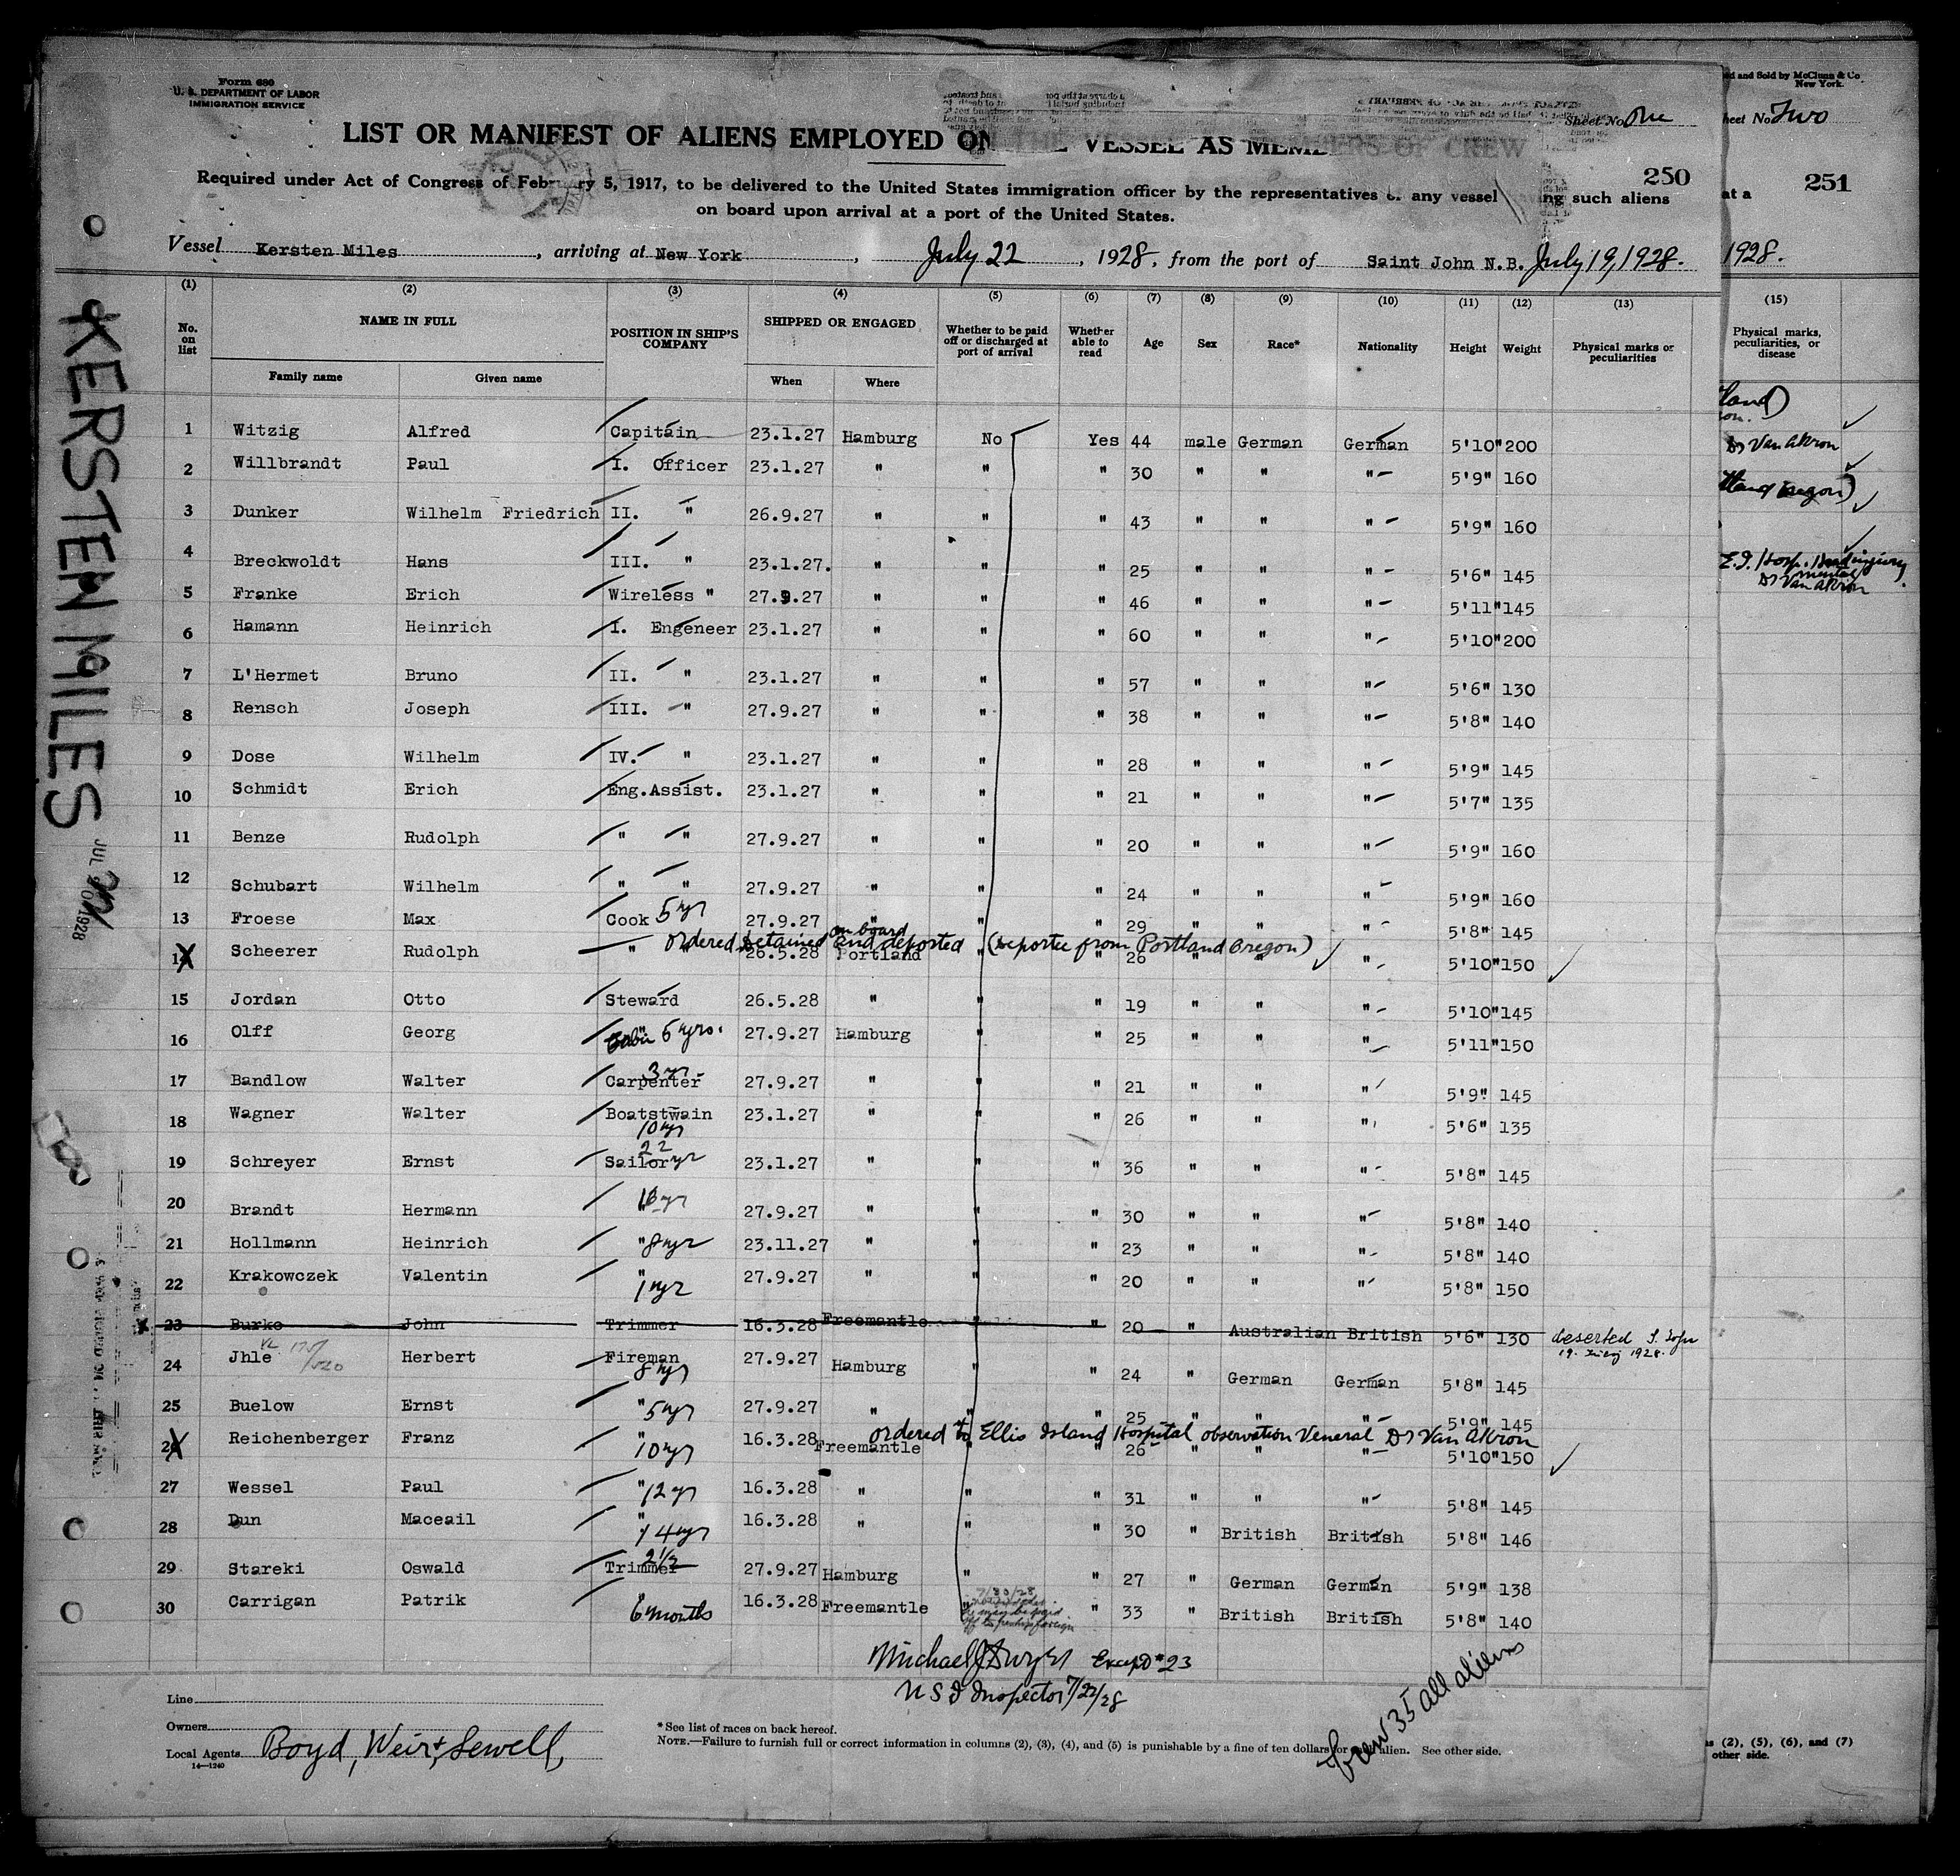 Form 680
U. S. DEPARTMENT OF LABOR
IMMIGRATION SERVICE
Sheet No. One
LIST OR MANIFEST OF ALIENS EMPLOYED ON THE VESSEL AS MEMBERS OF CREW
250
Required under Act of Congress of February 5, 1917, to be delivered to the United States immigration officer by the representatives of any vessel having such aliens
on board upon arrival at a port of the United States.
Vessel Kersten Miles, arriving at New York, July 22, 1928, from the port of Saint John N.B. July 19, 1928.
(1) (2) (3) (4) (5) (6) (7) (8) (9) (10) (11) (12) (13)
No. on list NAME IN FULL POSITION IN SHIP'S COMPANY SHIPPED OR ENGAGED Whether to be paid off or discharged at port of arrival Whether able to read Age Sex Race* Nationality Height Weight Physical marks or peculiarities
Family name Given name When Where
1 Witzig Alfred Capitain 23.1.27 Hamburg No Yes 44 male German German 5'10" 200
2 Willbrandt Paul I. Officer 23.1.27 " " " 30 " " " 5'9" 160
3 Dunker Wilhelm Friedrich II. " 26.9.27 " " " 43 " " " 5'9" 160
4 Breckwoldt Hans III. " 23.1.27. " " " 25 " " " 5'6" 145
5 Franke Erich Wireless " 27.9.27 " " " 46 " " " 5'11" 145
6 Hamann Heinrich I. Engeneer 23.1.27 " " " 60 " " " 5'10" 200
7 L'Hermet Bruno II. " 23.1.27 " " " 57 " " " 5'6" 130
8 Rensch Joseph III. " 27.9.27 " " " 38 " " " 5'8" 140
9 Dose Wilhelm IV. " 23.1.27 " " " 28 " " " 5'9" 145
10 Schmidt Erich Eng.Assist. 23.1.27 " " " 21 " " " 5'7" 135
11 Benze Rudolph " " 27.9.27 " " " 20 " " " 5'9" 160
12 Schubart Wilhelm " " 27.9.27 " " " 24 " " " 5'9" 160
13 Froese Max Cook 5 yr 27.9.27 " " " 29 " " " 5'8" 145
ordered detained on board and deported (deportee from Portland Oregon)
14 Scheerer Rudolph " " 26.5.28 Portland " " 26 " " " 5'10" 150
15 Jordan Otto Steward 26.5.28 " " " 19 " " " 5'10" 145
16 Olff Georg " 5 yrs. 27.9.27 Hamburg " " 25 " " " 5'11" 150
17 Bandlow Walter Carpenter 3 yr. 27.9.27 " " " 21 " " " 5'9" 145
18 Wagner Walter Boatstwain 10 yr 23.1.27 " " " 26 " " " 5'6" 135
19 Schreyer Ernst Sailor 22 yr 23.1.27 " " " 36 " " " 5'8" 145
20 Brandt Hermann " yr 27.9.27 " " " 30 " " " 5'8" 140
21 Hollmann Heinrich " 8 yr 23.11.27 " " " 23 " " " 5'8" 140
22 Krakowczek Valentin " 1 yr 27.9.27 " " " 20 " " " 5'8" 150
23 Burke John Trimmer 16.3.28 Freemantle " " 20 " Australian British 5'6" 130 deserted S. John
19. 1928.
24 Jhle Herbert Fireman 8 yr 27.9.27 Hamburg " " 24 " German German 5'8" 145
25 Buelow Ernst " 5 yr 27.9.27 " " " 25 " " " 5'9" 145
ordered to Ellis Island Hospital observation Veneral Dr Van Akron
26 Reichenberger Franz " 10 yr 16.3.28 Freemantle " " 26 " " " 5'10" 150
27 Wessel Paul " 12 yr 16.3.28 " " " 31 " " " 5'8" 145
28 Dun Maceail " 4 yr 16.3.28 " " " 30 " British British 5'8" 146
29 Stareki Oswald Trimmer 2 1/2 27.9.27 Hamburg " " 27 " German German 5'9" 138
30 Carrigan Patrik " 6 months 16.3.28 Freemantle " " 33 " British British 5'8" 140
7/30/28
may be paid
off
foreign
Michael J Dwyer Except #23
U S I Inspector 7/22/28
Crew 35 all aliens
Line
Owners
Local Agents Boyd, Weir & Sewell,
14—1240
*See list of races on back hereof.
NOTE.—Failure to furnish full or correct information in columns (2), (3), (4), and (5) is punishable by a fine of ten dollars for each alien. See other side.
KERSTEN MILES
JUL 1928
and Sold by McClunn & Co
New York.
heet No. Two
at a 251
1928.
(15)
Physical marks, peculiarities, or disease
land)
on.
Dr Van Akron
tland Oregon)
E.I. Hosp. Head injury
mental
Dr Van Akron
(2), (5), (6), and (7)
other side.